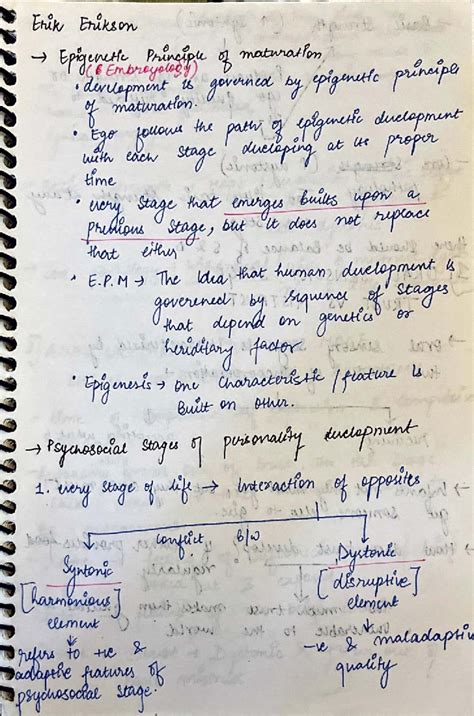 Erik Erikson
→ Epigenetic Principle of maturation
(Embroyology)
• development is governed by epigenetic principle
of maturation.
• Ego follows the path of epigenetic duelopment
with each stage dueloping at its proper
time
• uery stage that emerges builts upon a
previous stage, but it does not replace
that either
• E.P.M → The Idea that human duelopment is
goverened by sequence of stages
that depend on genetics or
heriditary factor
• Epigenesis → one characteristic / feature is
built on other.
→ Psychosocial stages of personality duelopment
1. uery stage of life → Interaction of opposites
Conflict b/w
Syntonic
[harmonious]
element
Dystonic
[disruptive]
element
refers to +ve &
adaptive features of
psychosocial stage.
-ve & maladaptive
quality